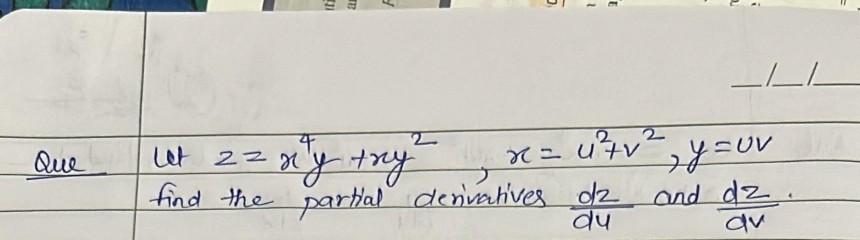 _/_/_
Que Let z = x⁴y + xy², x = u² + v², y = uv
find the partial derivatives dz/du and dz/dv.